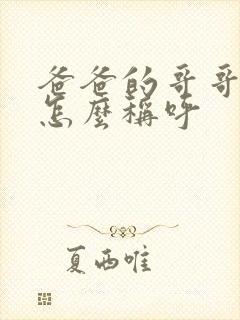 爸爸的哥哥
怎麼稱呼
夏西唯